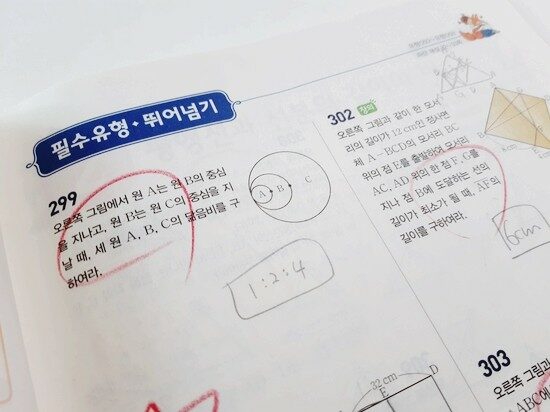 필수유형·뛰어넘기
299
오른쪽 그림에서 원 A는 원 B의 중심
을 지나고, 원 B는 원 C의 중심을 지
날 때, 세 원 A, B, C의 닮음비를 구
하여라.
A B C
1:2:4
302 창의
오른쪽 그림과 같이 한 모서
리의 길이가 12 cm인 정사면
체 A-BCD의 모서리 BC
위의 점 E를 출발하여 모서리
AC, AD 위의 한 점 F, G를
지나 점 B에 도달하는 선의
길이가 최소가 될 때, AF의
길이를 구하여라.
6cm
303
오른쪽 그림과
ABC에
32 cm
E
D